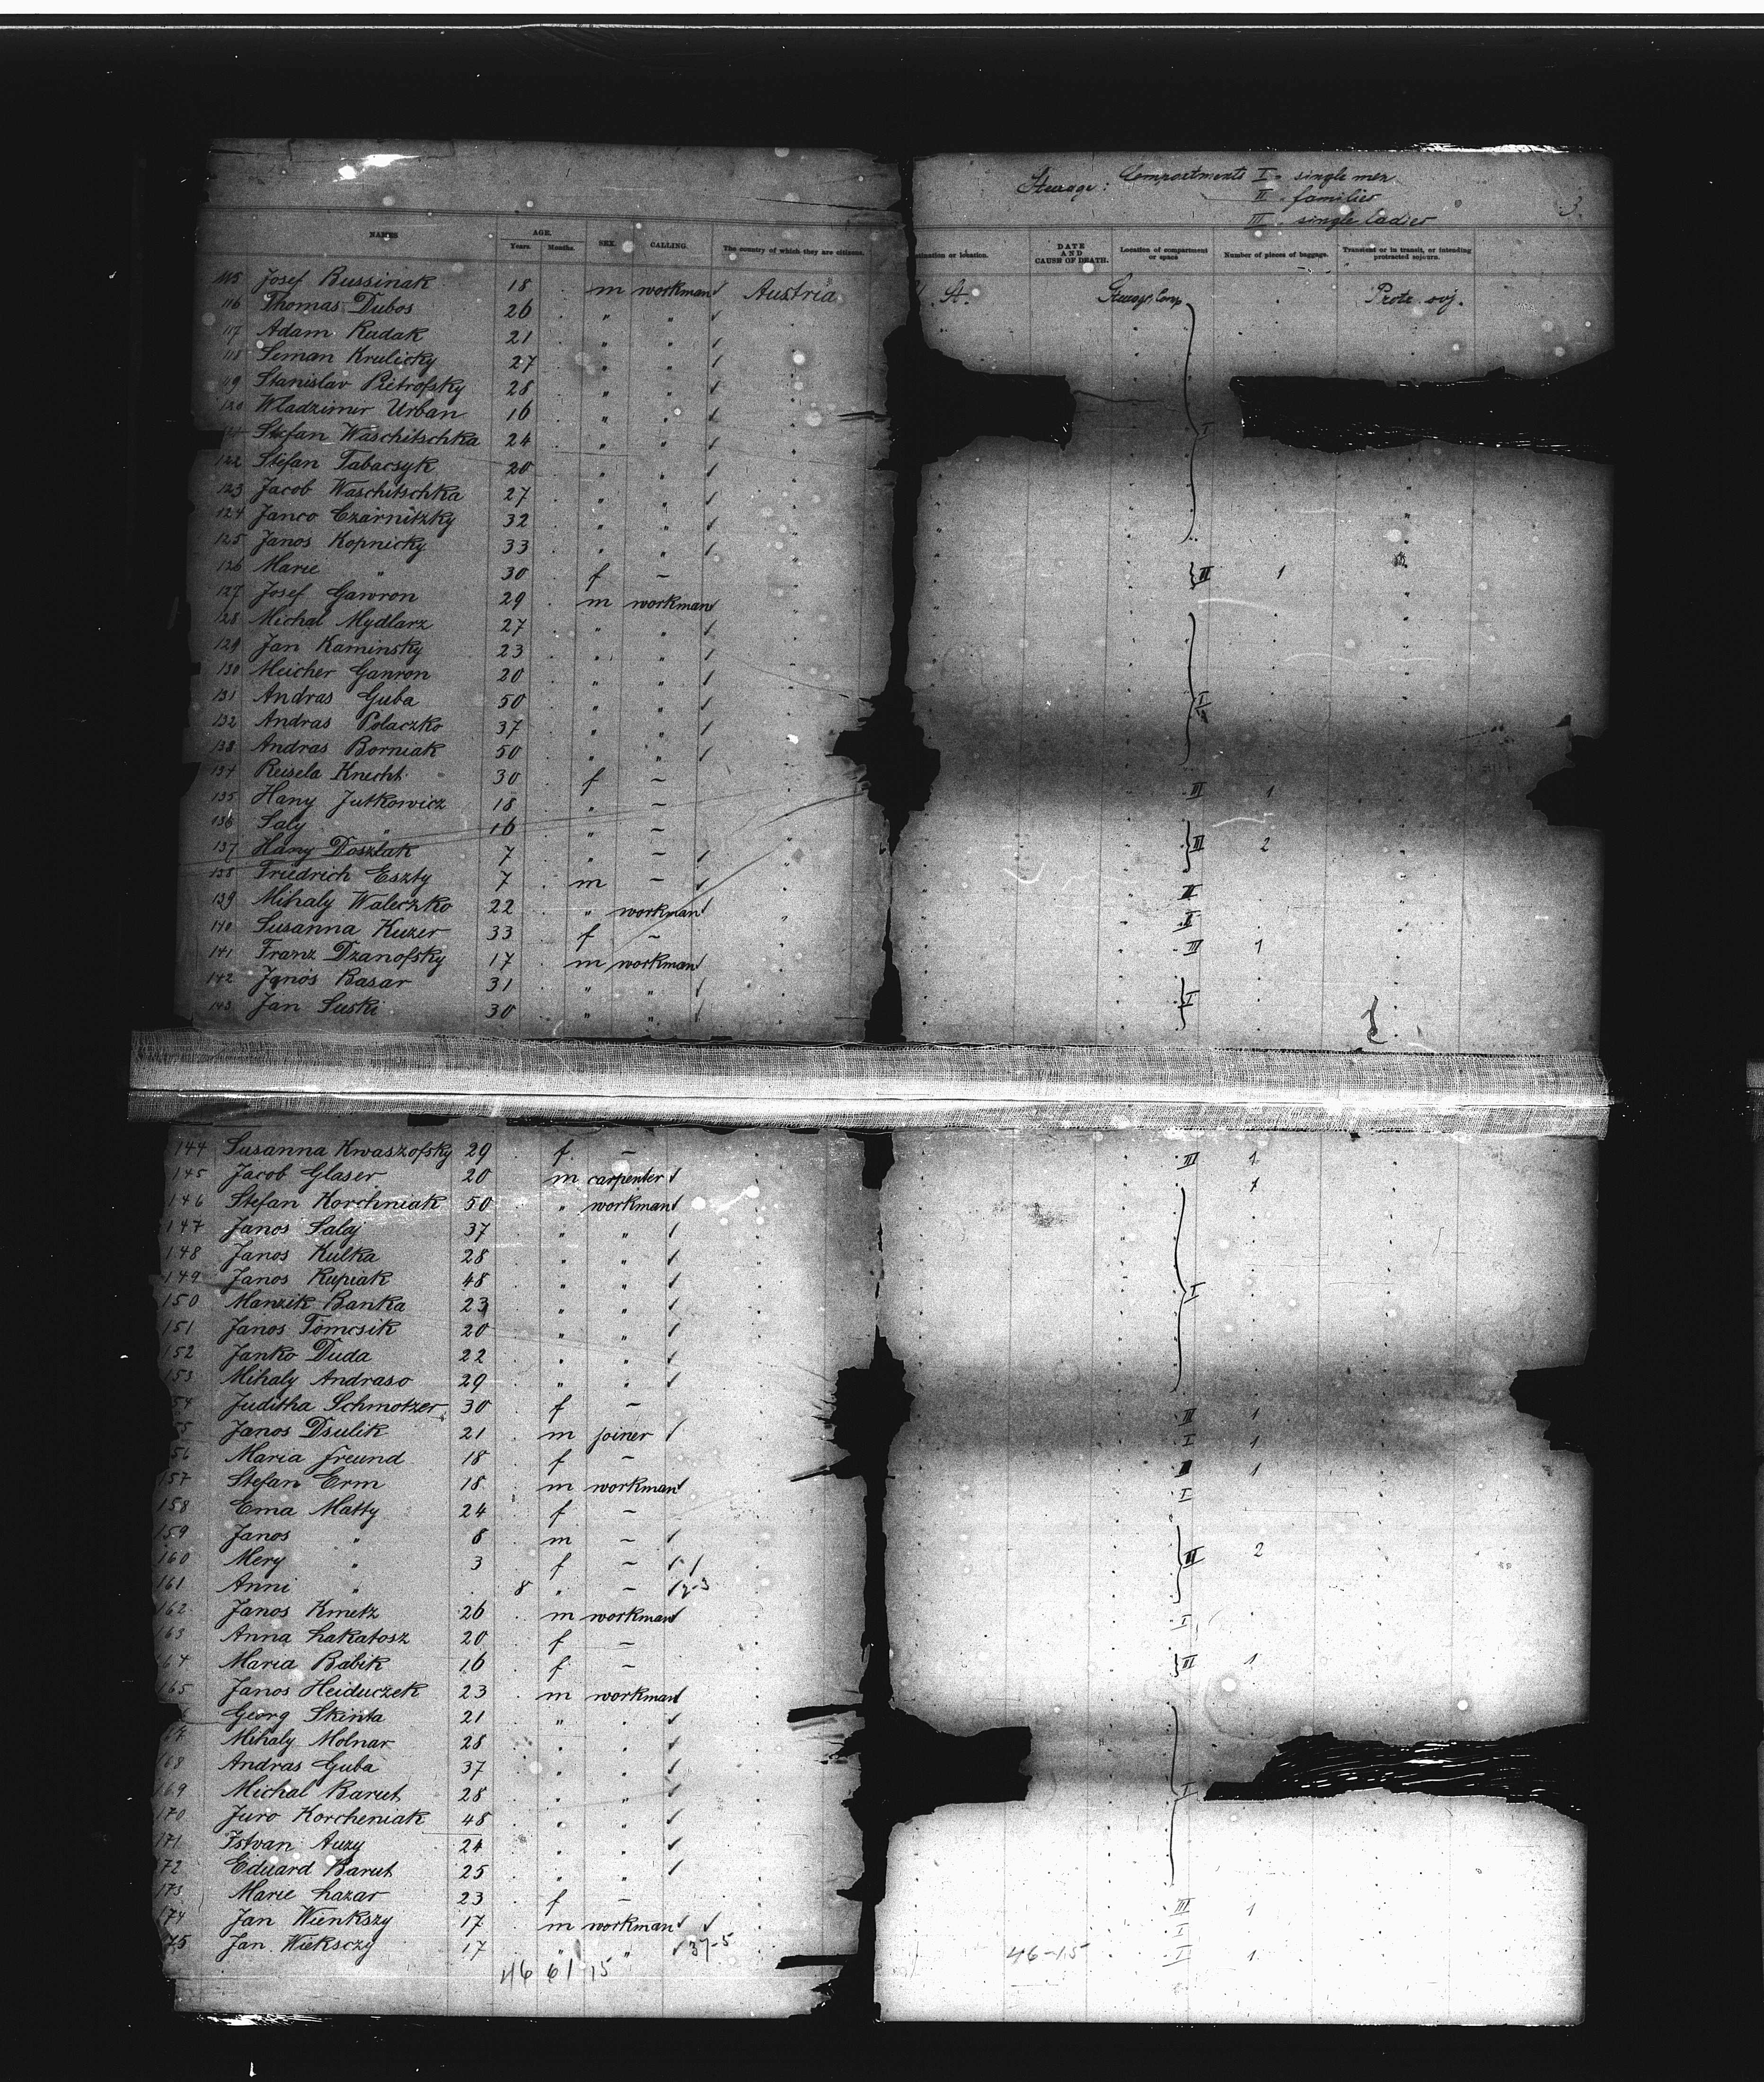 Steerage: Compartments I = single men
II = families
III = single ladies
3.
NAMES AGE. Years. Months. SEX. CALLING. The country of which they are citizens. DATE AND CAUSE OF DEATH. Location of compartment or space Number of pieces of baggage. Transient or in transit, or intending protracted sojourn.
115 Josef Bussiniak 18 m workman Austria St. Steerage Comp Protr. soj.
116 Thomas Dubos 26 " "
117 Adam Rudak 21 " "
118 Seman Krulicky 27 " "
119 Stanislav Pietrofsky 28 " "
120 Wladzimir Urban 16 " "
Stefan Waschitschka 24 " " I
122 Stefan Tabacsyk 20 " "
123 Jacob Waschitschka 27 " "
124 Janco Czarnitzky 32 " "
125 Janos Kopnicky 33 " "
126 Marie " 30 f – II 1
127 Josef Gawron 29 m workman
128 Michal Mydlarz 27 " "
129 Jan Kaminsky 23 " "
130 Meicher Ganron 20 " "
131 Andras Guba 50 " " I
132 Andras Polaczko 37 " "
133 Andras Borniak 50 " "
134 Reisela Knecht 30 f –
135 Hany Jutkowicz 18 " – III 1
136 Saly " 16 " –
137 Hany Doszlak 7 " – III 2
138 Friedrich Eszty 7 m – II
139 Mihaly Waleczko 22 " workman I
140 Susanna Kuzer 33 f – III 1
141 Franz Dzanofsky 17 m workman
142 Janos Basar 31 " " I
143 Jan Suski 30 " "
144 Susanna Kwaszofsky 29 f – III 1
145 Jacob Glaser 20 m carpenter 1
146 Stefan Korchniak 50 " workman
147 Janos Salaj 37 " "
148 Janos Kulka 28 " "
149 Janos Kupiak 48 " "
150 Manzik Banka 23 " " I
151 Janos Tomcsik 20 " "
152 Janko Duda 22 " "
153 Mihaly Andraso 29 " "
54 Juditha Schmotzer 30 f – III 1
55 Janos Dsulik 21 m joiner I 1
56 Maria Freund 18 f – III 1
157 Stefan Erm 18 m workman I
158 Ema Matty 24 f –
159 Janos " 8 m –
160 Mery " 3 f – II 2
161 Anni " 8 " – 2-3
162 Janos Kmetz 26 m workman I
163 Anna Lakatosz 20 f –
64 Maria Babik 16 f – III 1
165 Janos Heiduczek 23 m workman
Georg Skinta 21 " "
67 Mihaly Molnar 28 " "
68 Andras Guba 37 " "
169 Michal Barut 28 " " I
170 Juro Korcheniak 48 " "
171 Istvan Auzy 24 " "
72 Eduard Barut 25 " "
173 Marie Lazar 23 f – III 1
174 Jan Wienkszy 17 m workman I
75 Jan Wieksczy 17 " " 37-5 I 1
46 61 15 46-15